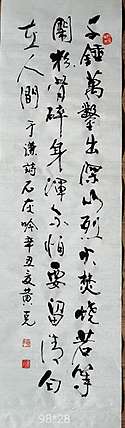 千錘萬鑿出深山烈火焚燒若等
閑粉骨碎身渾不怕要留清白
在人間 于謙詩石灰吟辛丑夏黃
98*28